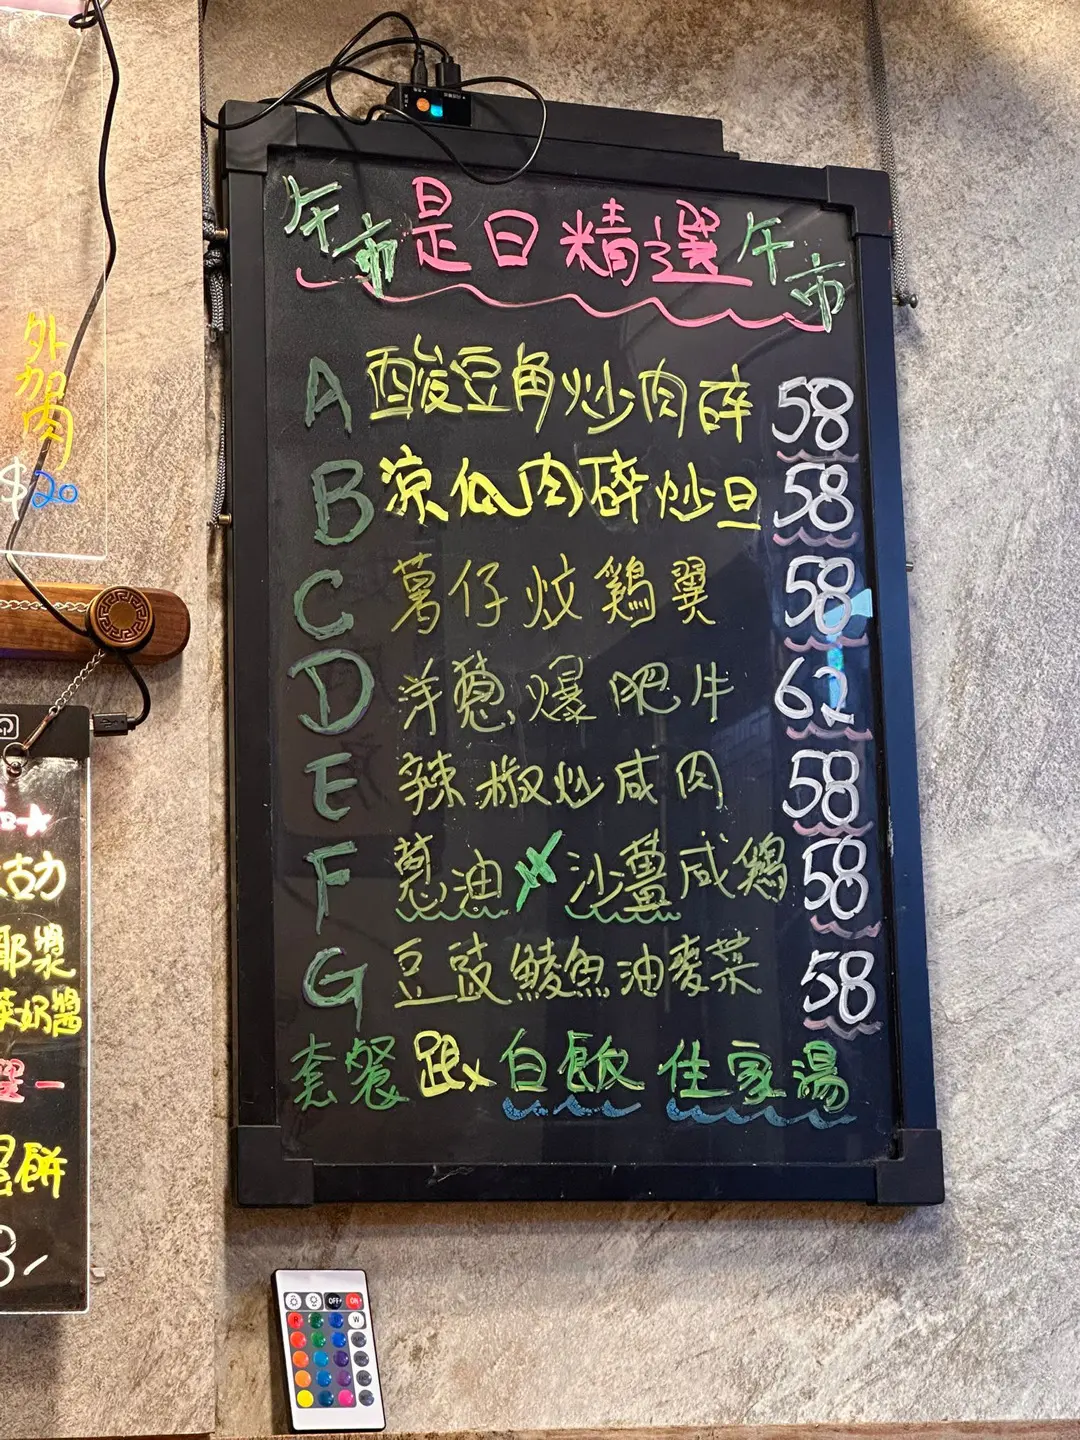 午市 是日精選 午市
A 酸豆角炒肉碎 58
B 凉瓜肉碎炒旦 58
C 薯仔炆鷄翼 58
D 洋葱爆肥牛 62
E 辣椒炒咸肉 58
F 葱油 沙薑咸鷄 58
G 豆豉鯪魚油麥菜 58
套餐跟白飯 住家湯
外加肉
$20
奶醬
餅
OFF ON
R W